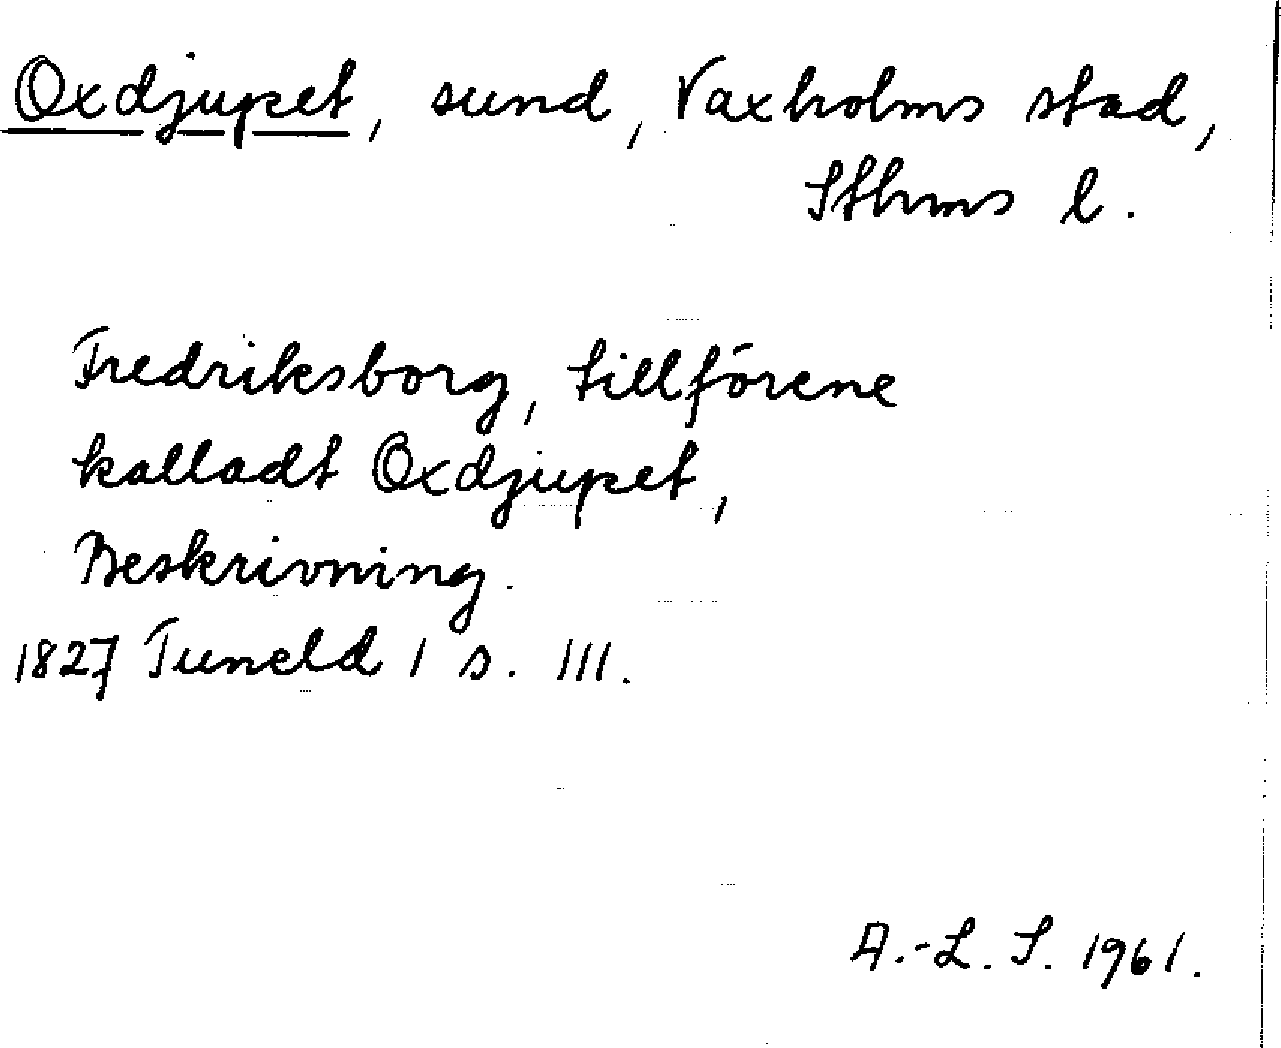 Oxdjupet, sund, Vaxholms stad,
Sthms l.
Fredriksborg, tillförene
kalladt Oxdjupet,
Beskrivning.
1827 Tuneld I s. 111.
A.-L. S. 1961.